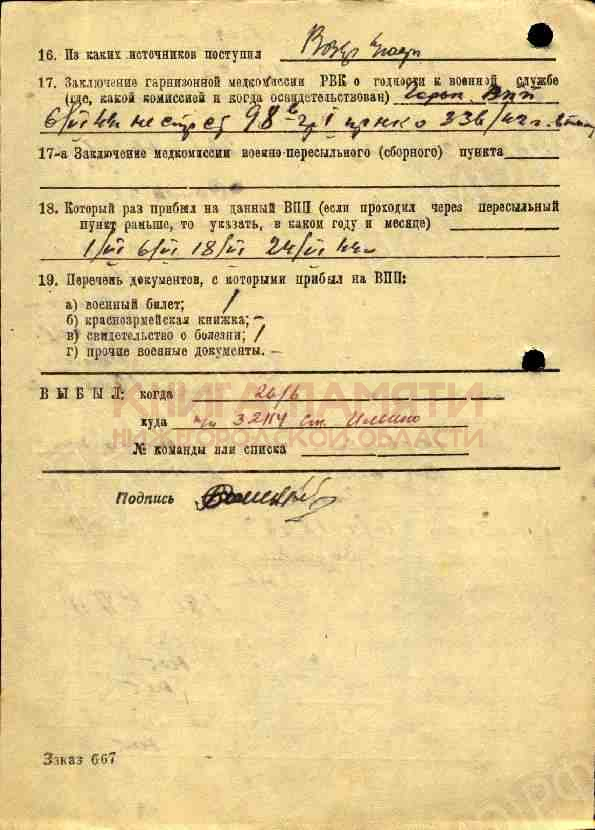 16. Из каких источников поступил
17. Заключение гарнизонной медкомиссии РВК о годности к военной службе
(где, какой комиссией и когда освидетельствован) Горьк. ВПП
6/VI 44 не стр
17-а Заключение медкомиссии военно-пересыльного (сборного) пункта
18. Который раз прибыл на данный ВПП (если проходил через пересыльный
пункт раньше, то указать, в каком году и месяце)
1/VI 6/VI 18/VI 24/VI 44
19. Перечень документов, с которыми прибыл на ВПП:
а) военный билет;
б) красноармейская книжка; —
в) свидетельство о болезни;
г) прочие военные документы. —
ВЫБЫЛ: когда 26/6
КНИГА ПАМЯТИ
куда Ст. Ильино
НИЖЕГОРОДСКОЙ ОБЛАСТИ
№ команды или списка
Подпись
Заказ 667